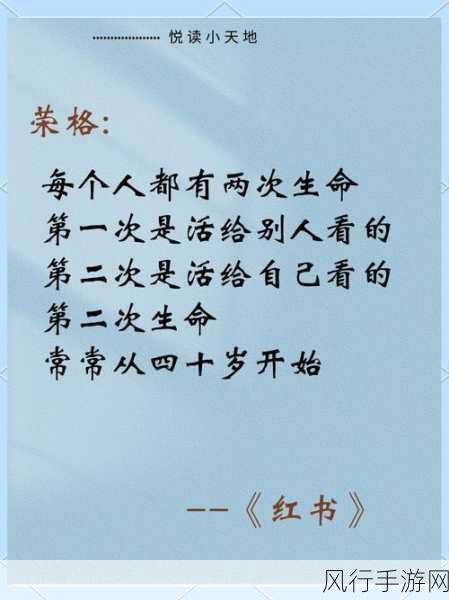 悦读小天地
荣格:
每个人都有两次生命
第一次是活给别人看的
第二次是活给自己看的
第二次生命
常常从四十岁开始
--《红书》
风行手游网